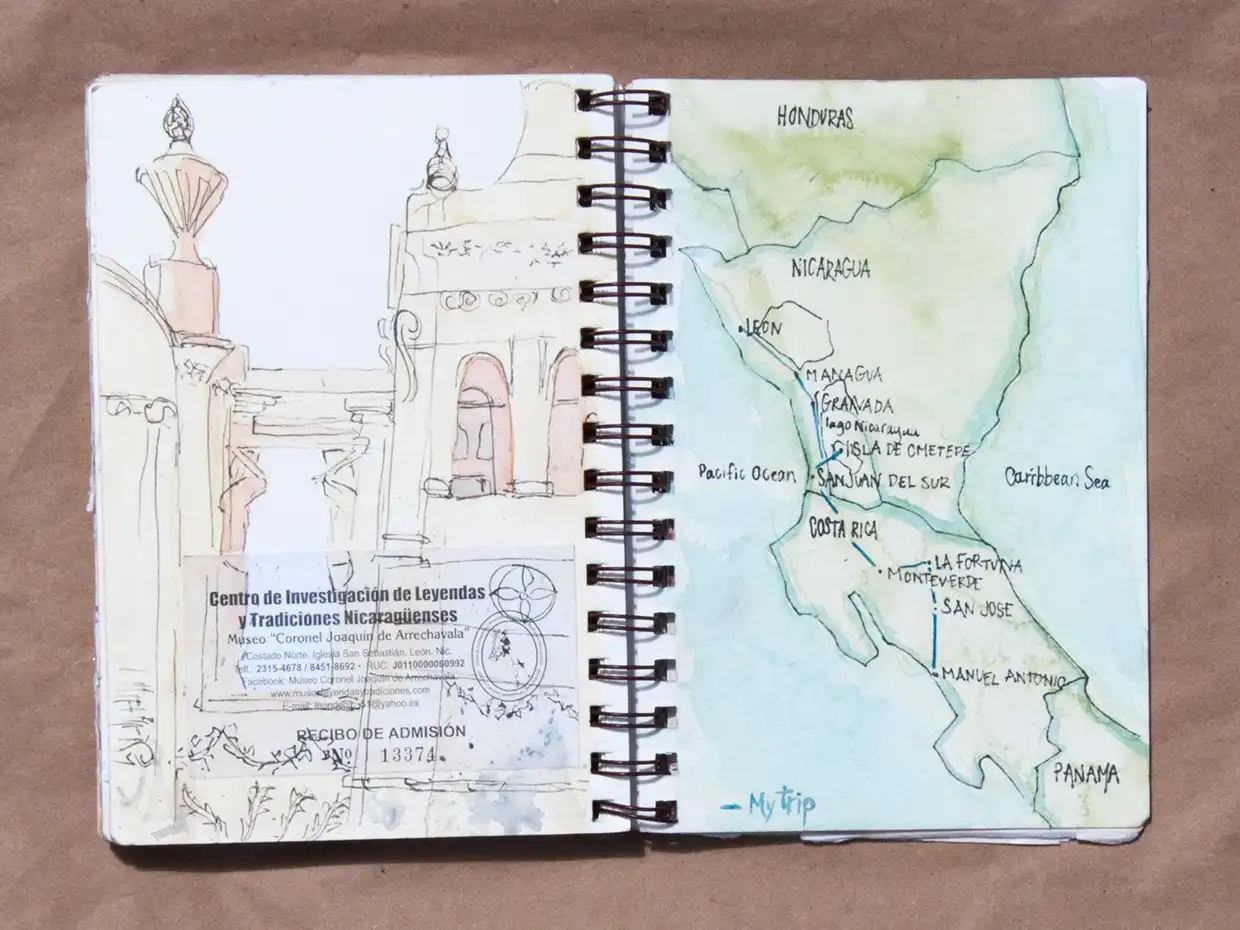 Centro de Investigación de Leyendas
y Tradiciones Nicaragüenses
Museo "Coronel Joaquín de Arrechavala"
Costado Norte. Iglesia San Sebastián. León, Nic.
Telf.: 2315-4678 / 8451-8692 • RUC. J0110000060992
Facebook: Museo Coronel Joaquin de Arrechavala
www.museoleyendasytradiciones.com
E-mail:
RECIBO DE ADMISIÓN
Nº 13374
HONDURAS
NICARAGUA
LEON
MANAGUA
GRANADA
lago Nicaragua
ISLA DE OMETEPE
Pacific Ocean
SAN JUAN DEL SUR
Caribbean Sea
COSTA RICA
LA FORTUNA
MONTEVERDE
SAN JOSE
MANUEL ANTONIO
PANAMA
My trip